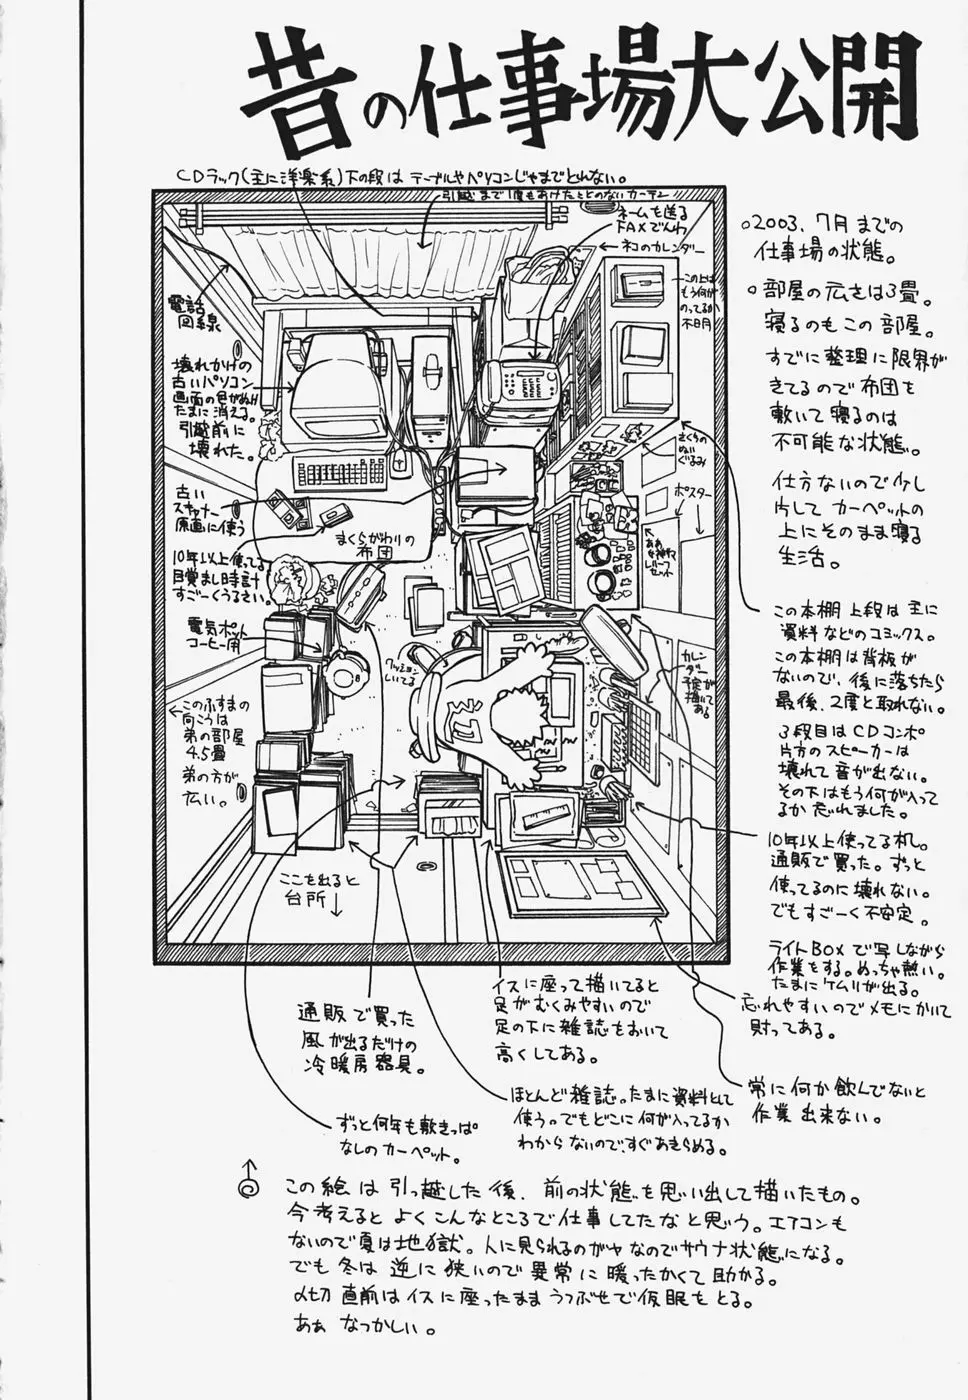 昔の仕事場大公開
CDラック(主に洋楽系)下の段は テーブルやパソコンじゃまでとれない。
引越まで1度もあけたことのないカーテン
ネームを送る
FAXでんわ
ネコのカレンダー
この上は
もう何が
のってるか
不明
電話
回線
壊れかけの
古いパソコン
画面の色がぬけ
たまに消える。
引越前に
壊れた。
さくらの
ぬいぐるみ
ポスター
古い
スキャナー
原画に使う
まくらがわりの
布団
ああっ女神さまっ
レリーフ
セット
10年以上使ってる
目覚まし時計
すごーくうるさい。
電気ポット
コーヒー用
クッション
しいてる
カレン
ダー
予定が
描いてある
このふすまの
向こうは
弟の部屋
4.5畳
弟の方が
広い。
ここを出ると
台所
○2003. 7月までの
仕事場の状態。
○部屋の広さは3畳。
寝るのもこの部屋。
すでに整理に限界が
きてるので布団を
敷いて寝るのは
不可能な状態。
仕方ないので少し
片してカーペットの
上にそのまま寝る
生活。
この本棚上段は主に
資料などのコミックス。
この本棚は背板が
ないので、後に落ちたら
最後、2度と取れない。
3段目はCDコンポ
片方のスピーカーは
壊れて音が出ない。
その下はもう何が入って
るか忘れました。
10年以上使ってる机。
通販で買った。ずっと
使ってるのに壊れない。
でもすごーく不安定。
ライトBoxで写しながら
作業をする。めっちゃ熱い。
たまにケムリが出る。
忘れやすいのでメモにかいて
貼ってある。
常に何か飲んでないと
作業出来ない。
イスに座って描いてると
足がむくみやすいので
足の下に雑誌をおいて
高くしてある。
通販で買った
風が出るだけの
冷暖房器具。
ほとんど雑誌。たまに資料として
使う。でもどこに何が入ってるか
わからないので、すぐあきらめる。
ずっと何年も敷きっぱ
なしのカーペット。
この絵は引っ越した後、前の状態を思い出して描いたもの。
今考えるとよくこんなところで仕事してたなと思う。エアコンも
ないので夏は地獄。人に見られるのがヤなのでサウナ状態になる。
でも冬は逆に狭いので異常に暖ったかくて助かる。
〆切直前はイスに座ったままうつぶせで仮眠をとる。
ああ なつかしい。